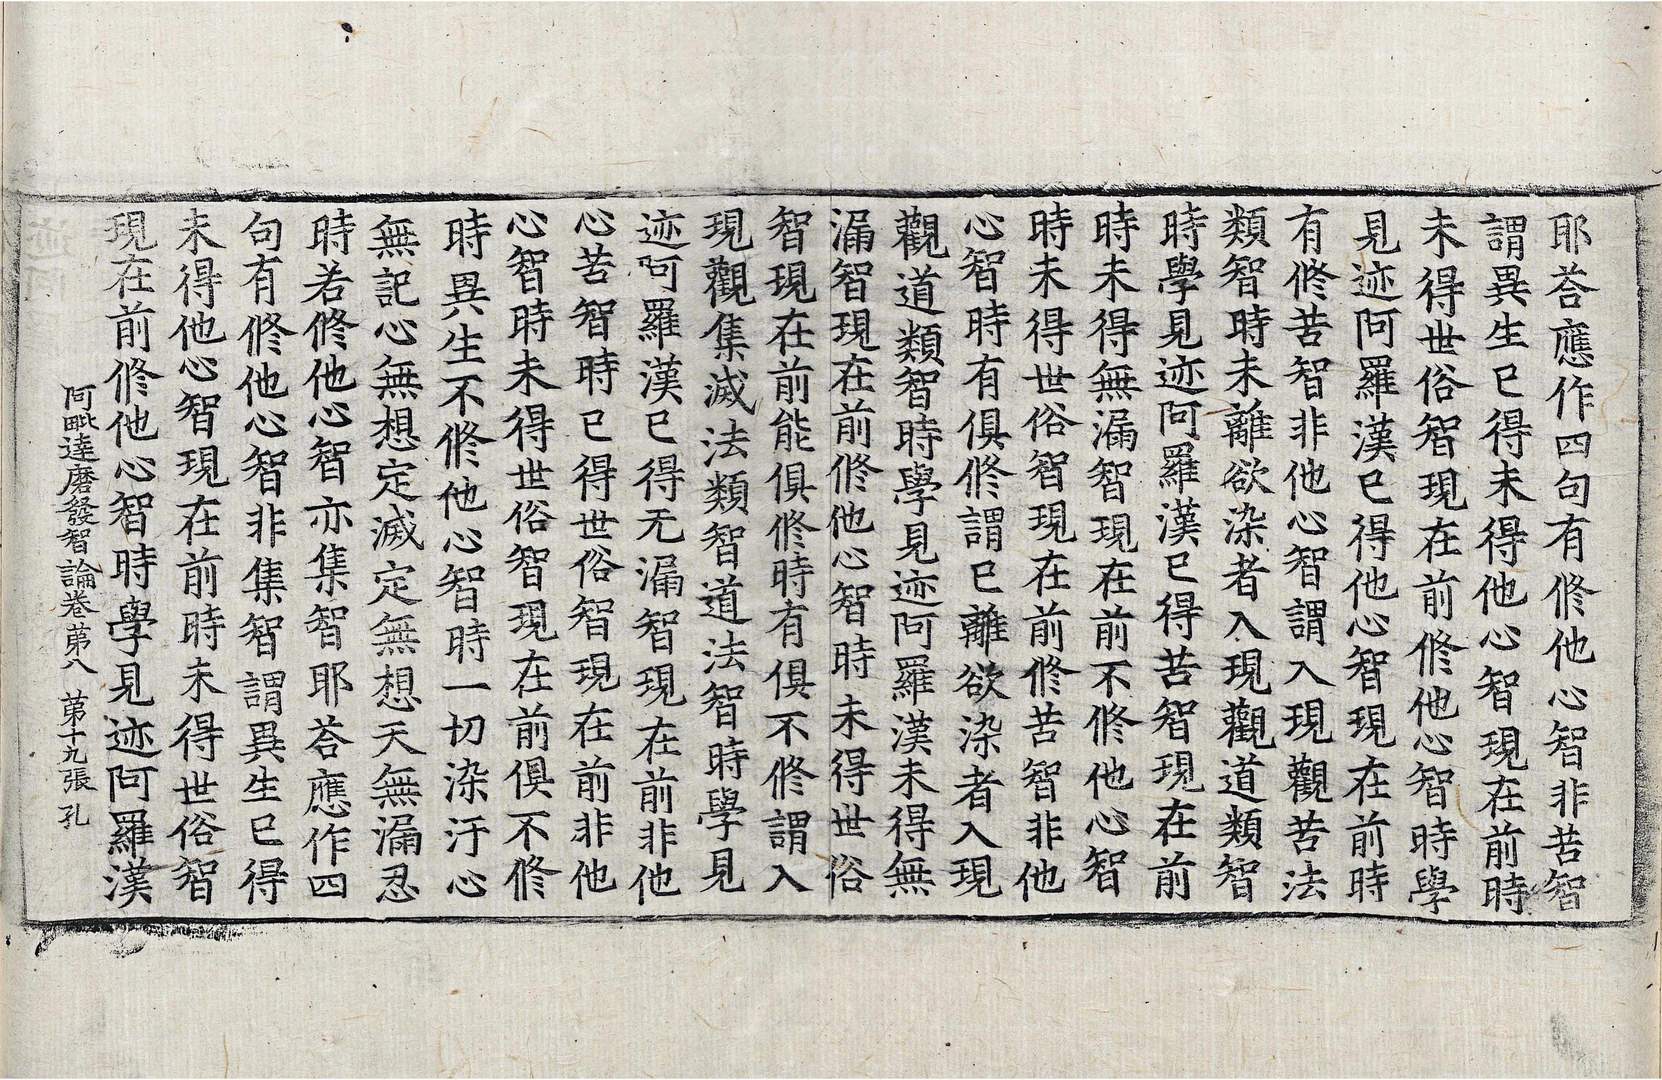 耶荅應作四句有修他心智非苦智
謂異生已得未得他心智現在前時
未得世俗智現在前修他心智時學
見迹阿羅漢已得他心智現在前時
有修苦智非他心智謂入現觀苦法
類智時未離欲染者入現觀道類智
時學見迹阿羅漢已得苦智現在前
時未得無漏智現在前不修他心智
時未得世俗智現在前修苦智非他
心智時有俱修謂已離欲染者入現
觀道類智時學見迹阿羅漢未得無
漏智現在前修他心智時未得世俗
智現在前能俱修時有俱不修謂入
現觀集滅法類智道法智時學見
迹阿羅漢已得无漏智現在前非他
心苦智時已得世俗智現在前非他
心智時未得世俗智現在前俱不修
時異生不修他心智時一切染汙心
無記心無想定滅定無想天無漏忍
時若修他心智亦集智耶荅應作四
句有修他心智非集智謂異生已得
未得他心智現在前時未得世俗智
現在前修他心智時學見迹阿羅漢
阿毗達磨發智論卷第八 第十九張 孔